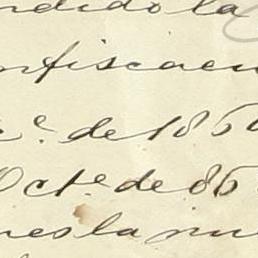 ndido la
nfiscaen
e. de 186
Octe de 86
nes la nu